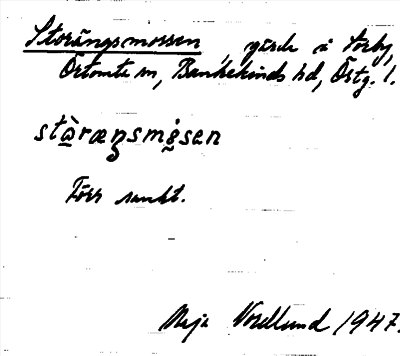 Storängsmossen, gärde å Sörby,
Örtomta sn, Bankekinds hd, Östg. l.
stò̱ræŋsmo̱sen
Förr sankt.
Maja Nordlund 1947.